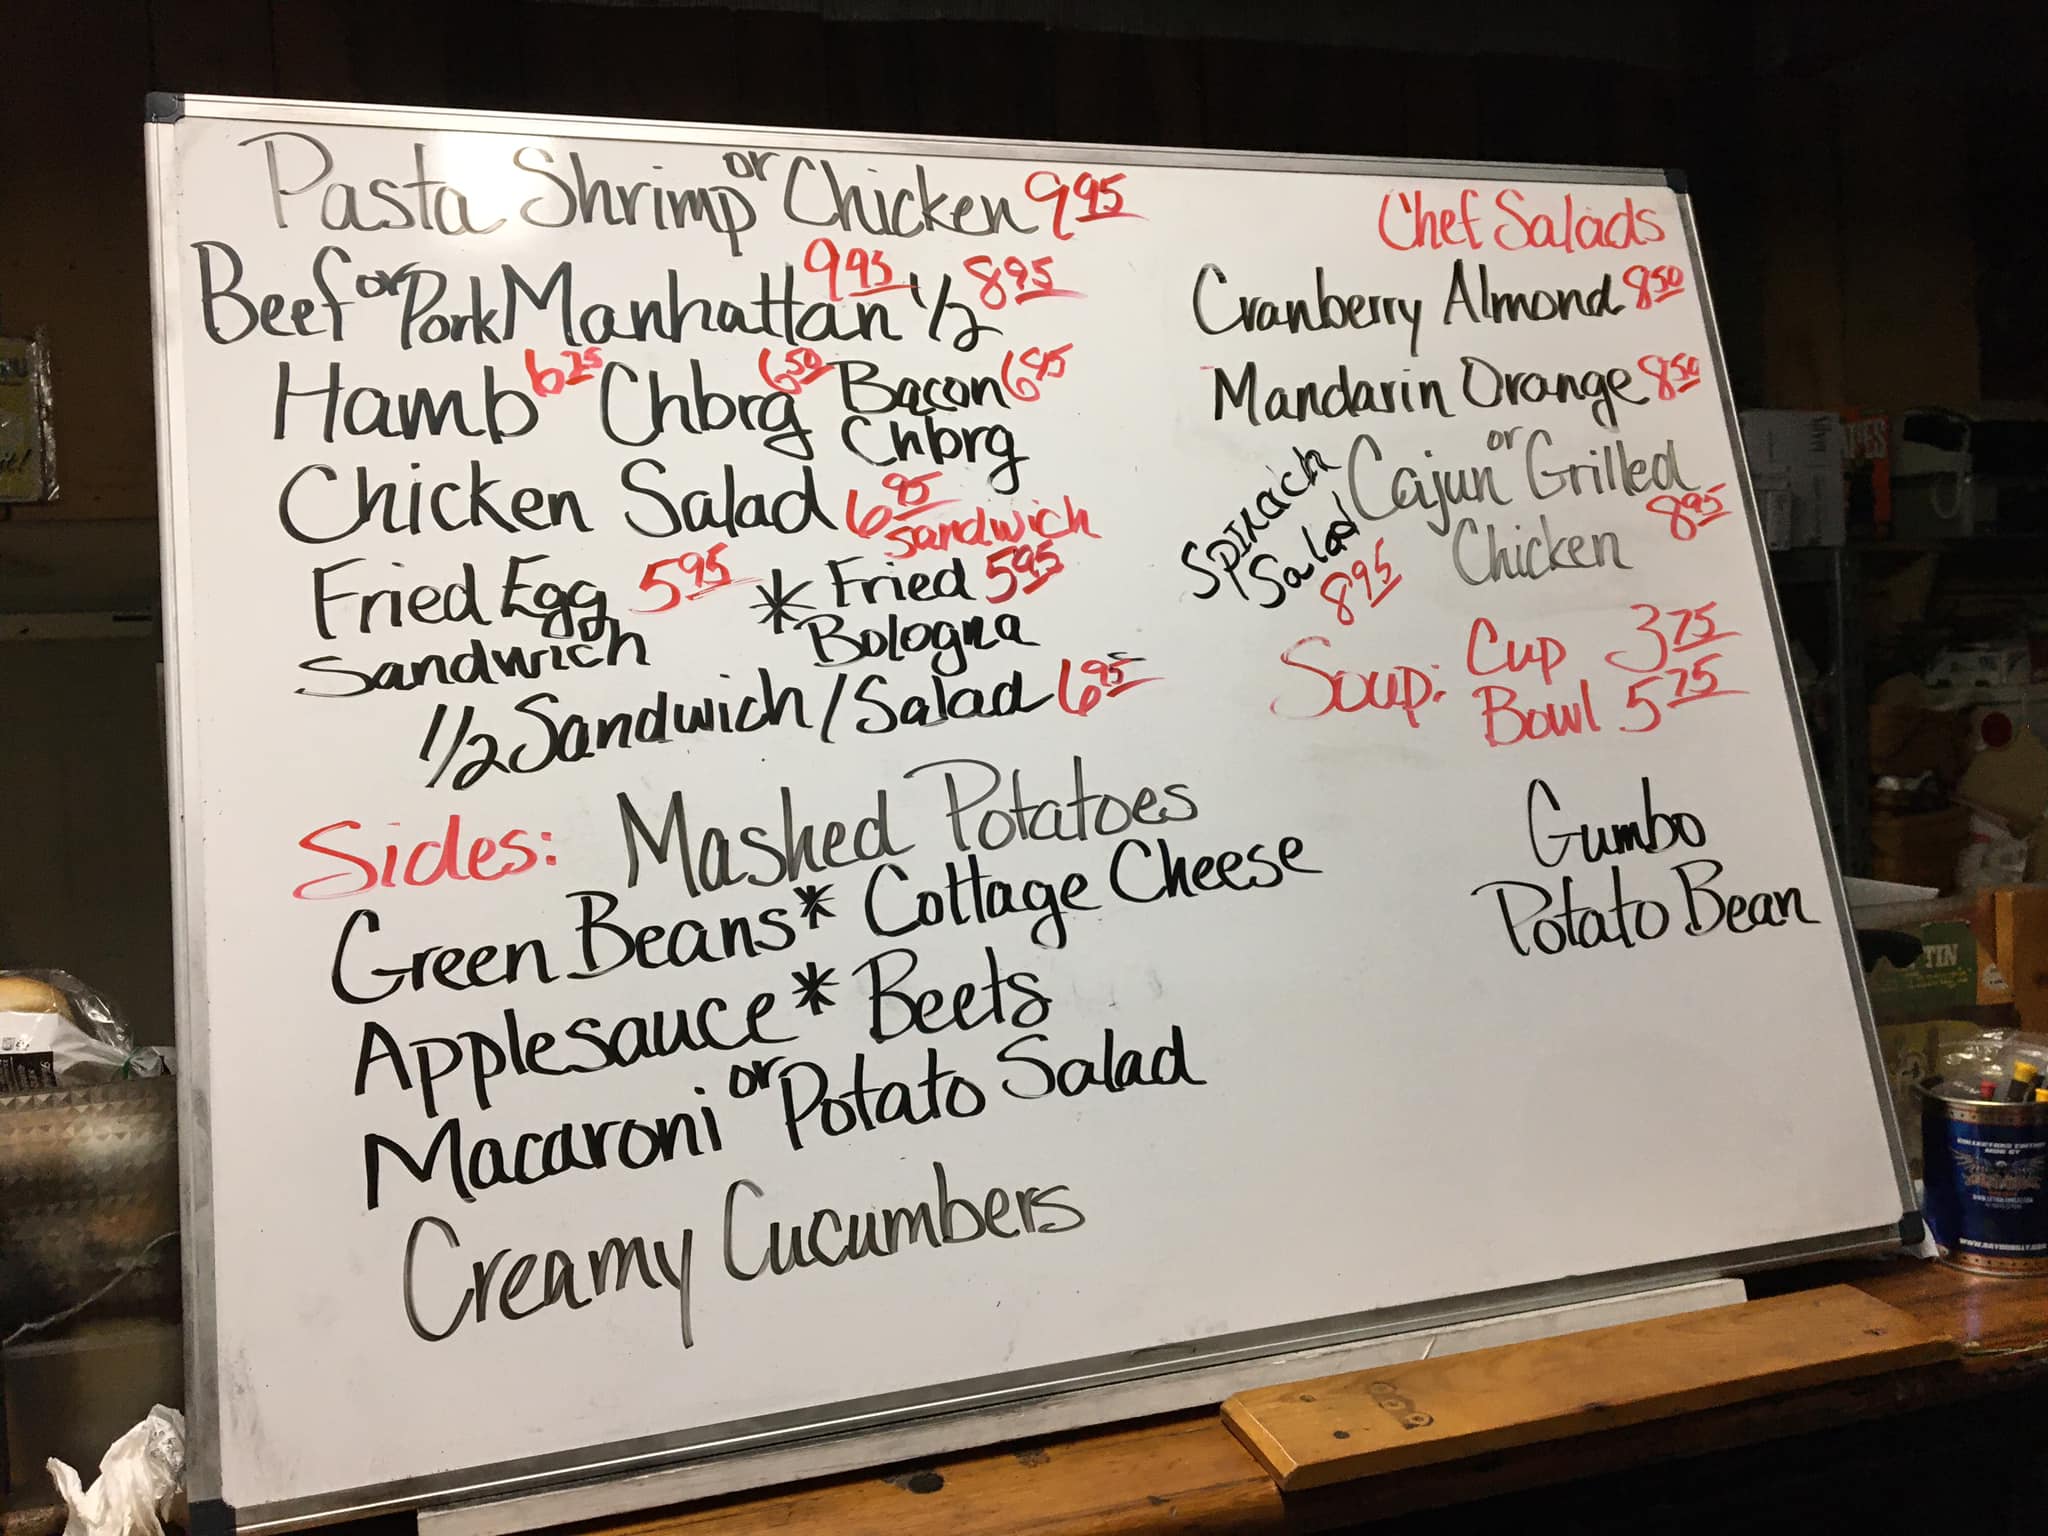 Pasta Shrimp or Chicken 9.95
Beef or Pork Manhattan 9.95 1/2 8.95
Hamb 6.25 Chbrg 6.50 Bacon Chbrg 6.95
Chicken Salad 6.95 Sandwich
Fried Egg Sandwich 5.95 * Fried Bologna 5.95
1/2 Sandwich/Salad 6.95
Sides: Mashed Potatoes
Green Beans * Cottage Cheese
Applesauce * Beets
Macaroni or Potato Salad
Creamy Cucumbers
Chef Salads
Cranberry Almond 8.50
Mandarin Orange 8.50
Cajun or Grilled
Chicken 8.95
Spinach
Salad
8.95
Soup: Cup 3.75
Bowl 5.75
Gumbo
Potato Bean
TIN